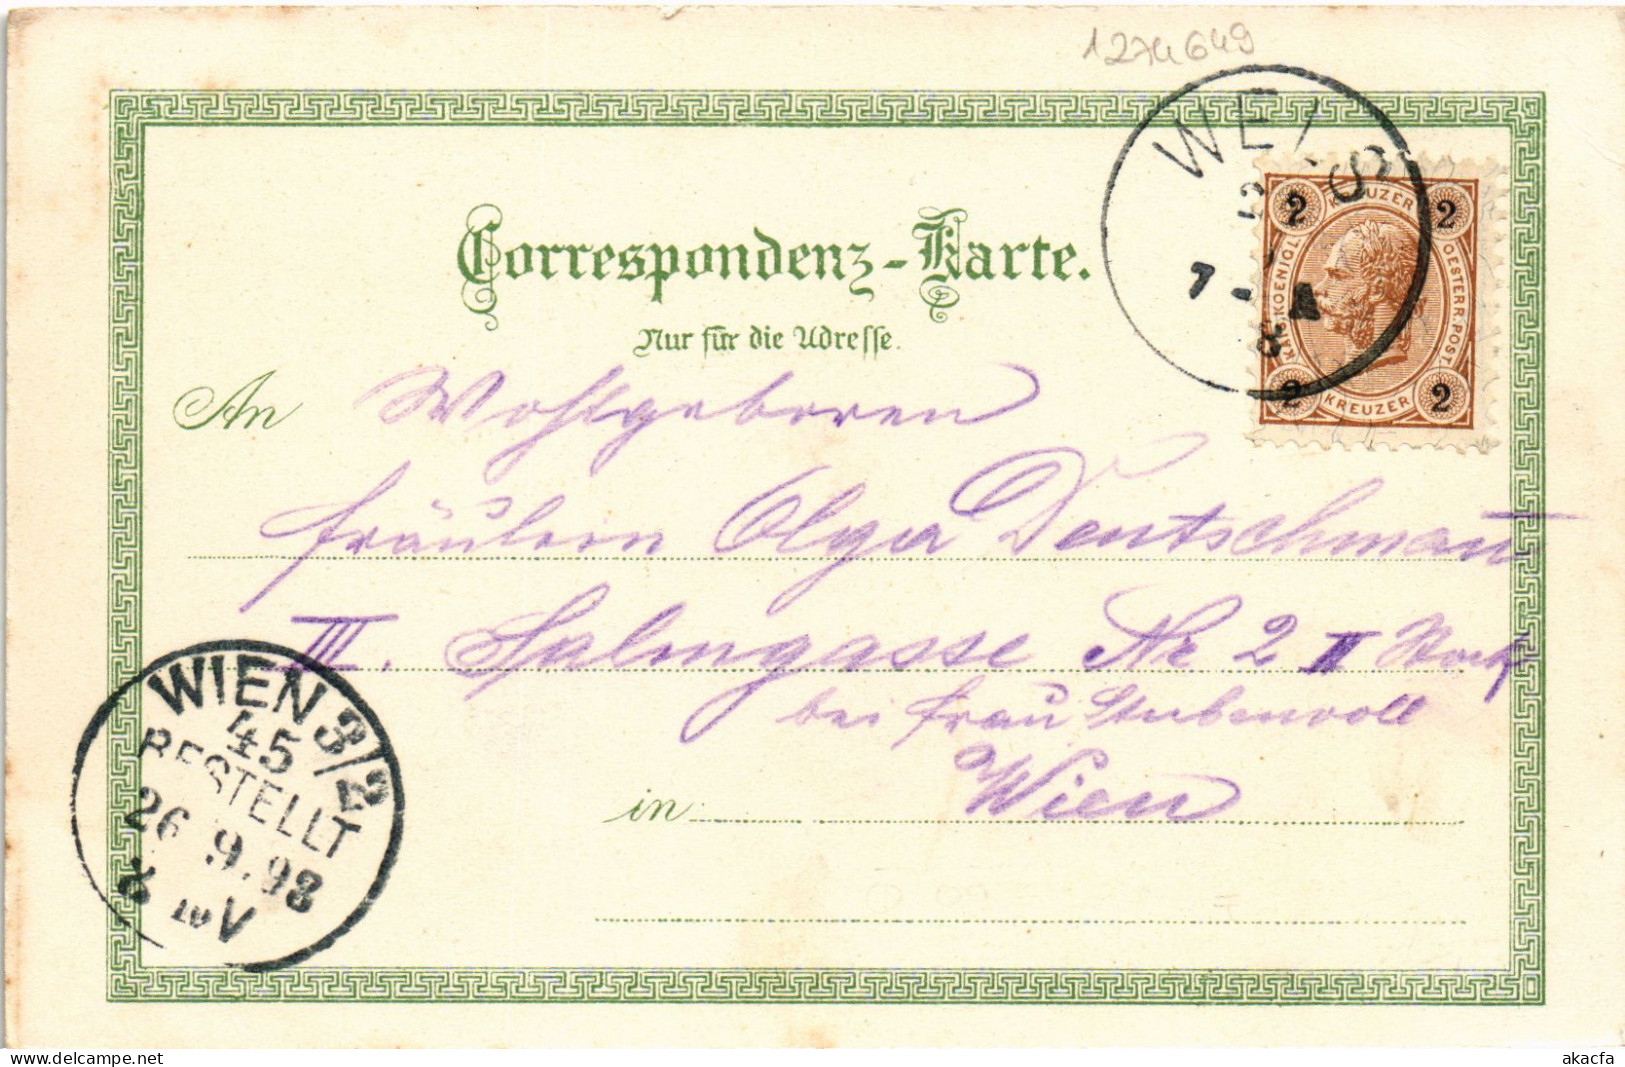 1274649
WELS
7 - A
KAIS. KOENIGL. OESTERR. POST.
2 KREUZER 2
2 KREUZER 2
Correspondenz-Karte.
Nur für die Adresse.
An Wohlgeboren
Fräulein Olga Deutschmann
III. Salmgasse Nr 2 II Stock
bei Frau Stubenvoll
in Wien
WIEN 3/2
45
BESTELLT
26.9.98
8 V
delcampe.net
akacfa